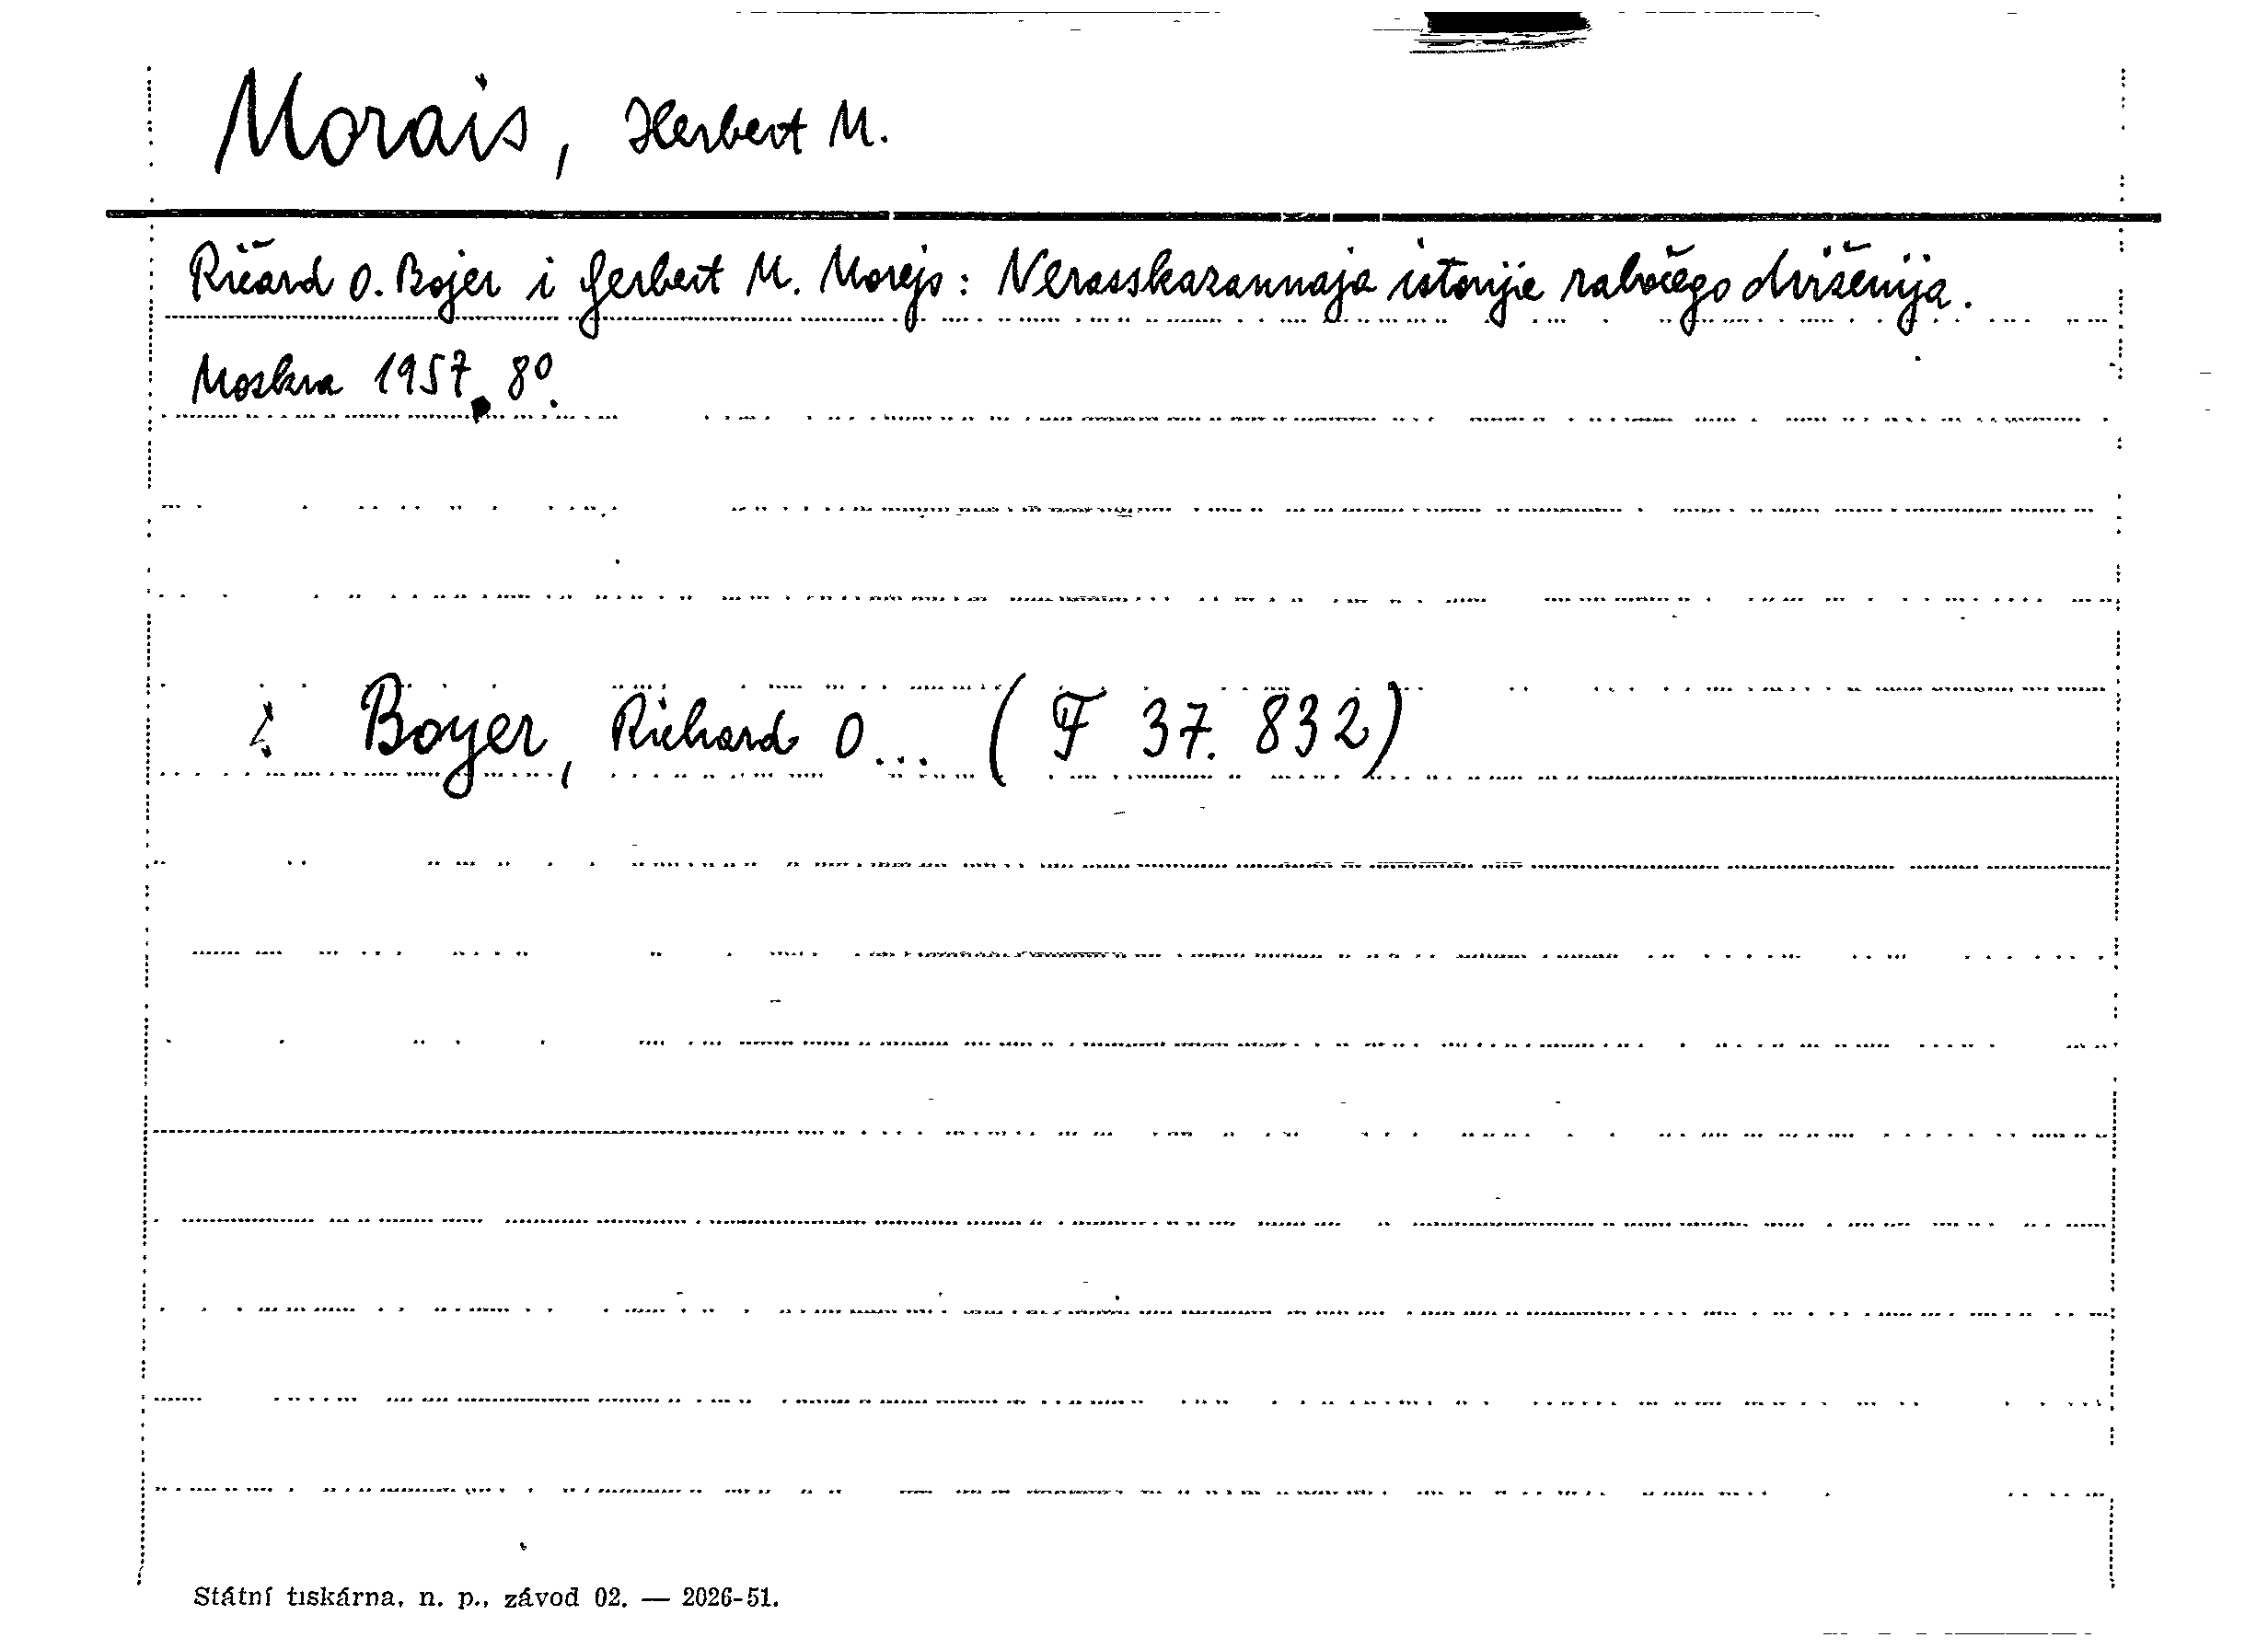 Morais, Herbert M.
Ričard O. Bojer i Gerbert M. Morejs: Nerasskazannaja istorije rabočego dviženija.
Moskva 1957. 8°.
z. Boyer, Richard O... (F 37.832)
Státní tiskárna, n. p., závod 02. — 2026-51.